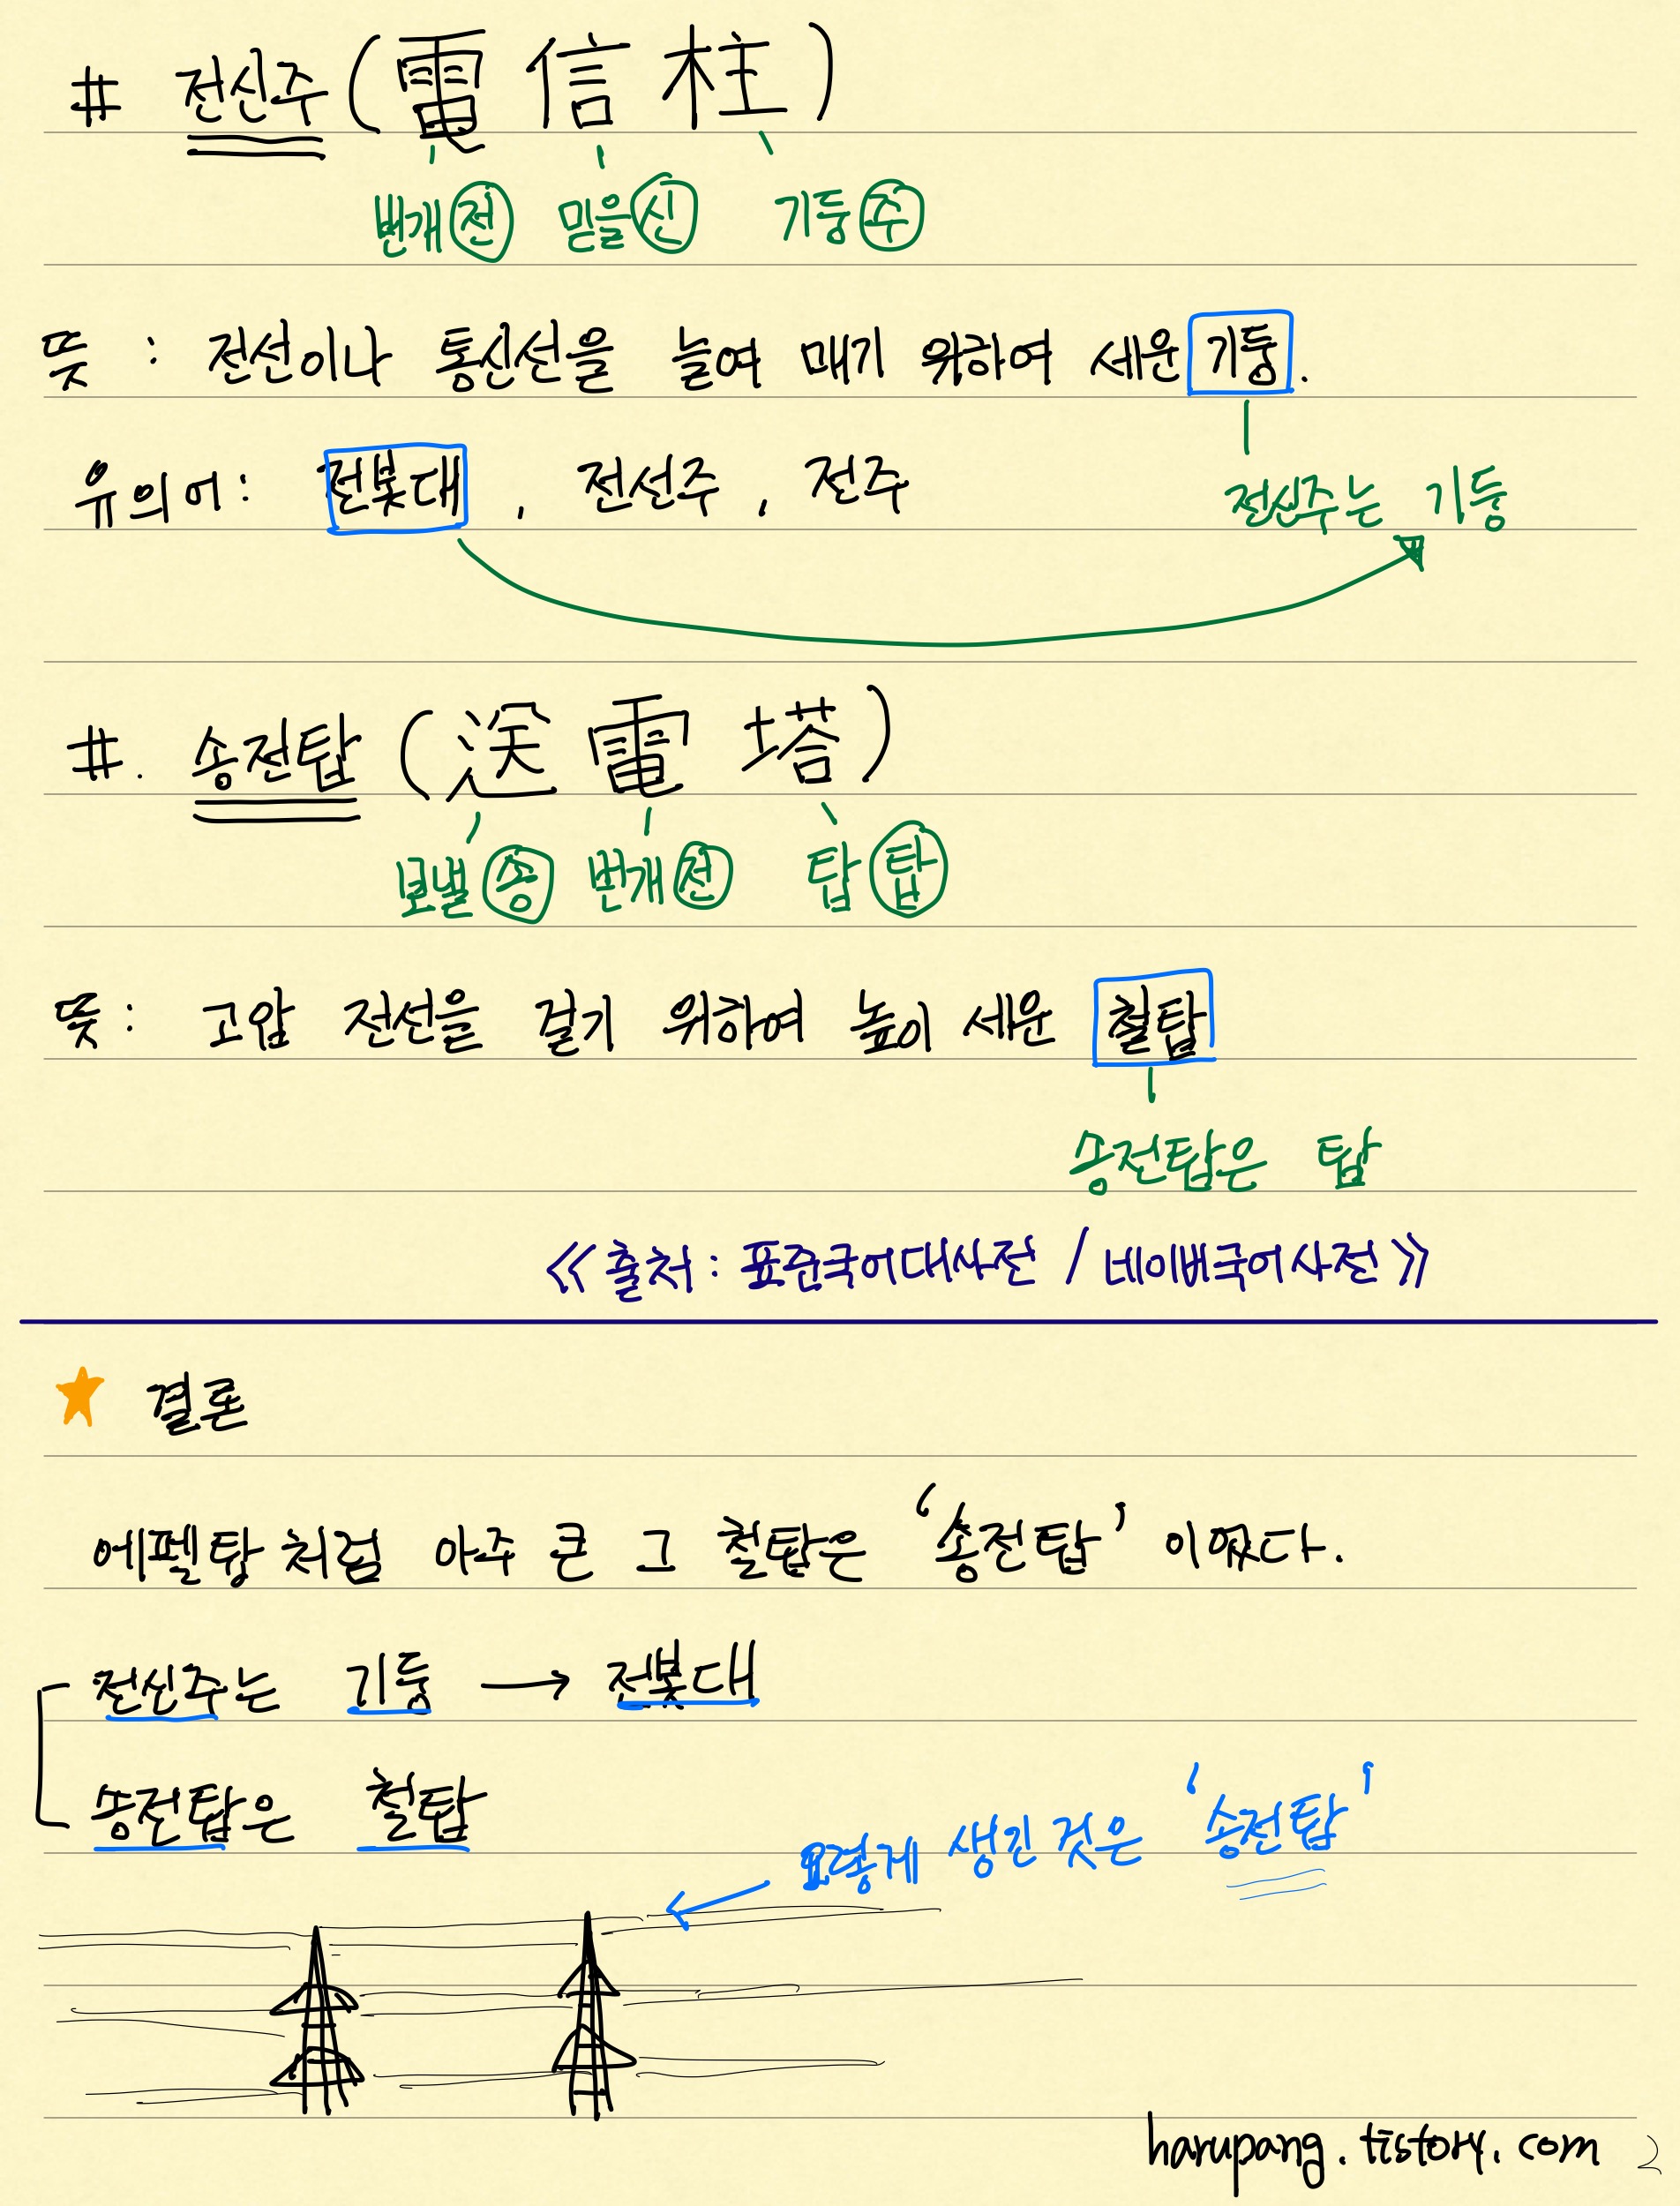 # 전신주 (電信柱)
번개 전 믿을 신 기둥 주
뜻 : 전선이나 통신선을 늘여 매기 위하여 세운 기둥.
유의어 : 전봇대, 전선주, 전주
전신주는 기둥
#. 송전탑 (送電塔)
보낼 송 번개 전 탑 탑
뜻 : 고압 전선을 걸기 위하여 높이 세운 철탑
송전탑은 탑
《출처 : 표준국어대사전 / 네이버국어사전》
★ 결론
에펠탑처럼 아주 큰 그 철탑은 '송전탑' 이었다.
전신주는 기둥 → 전봇대
송전탑은 철탑
요렇게 생긴 것은 '송전탑'
harupang.tistory.com 2